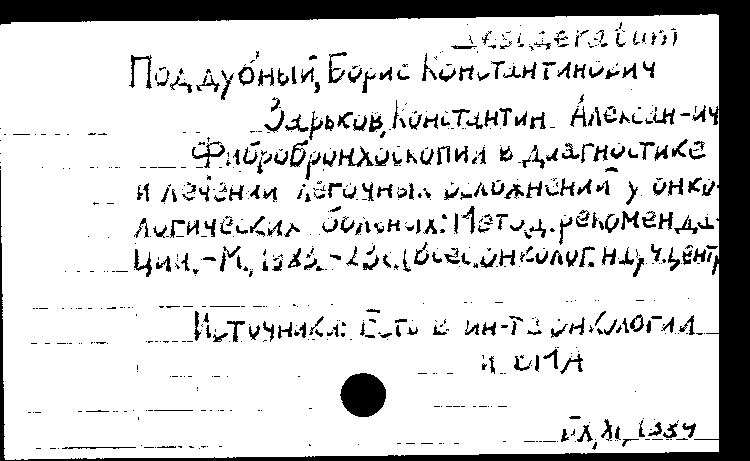 Desideratum
Поддубный, Борис Константинович
Зарьков, Константин Алексан-ич
Фибробронхоскопия в диагностике
и лечении легочных осложнений у онко-
логических больных: Метод. рекоменда-
ции. - М., 1983. - 23с. (Всес. онколог. науч. центр
Источники: Есть в ин-те онкологии
и